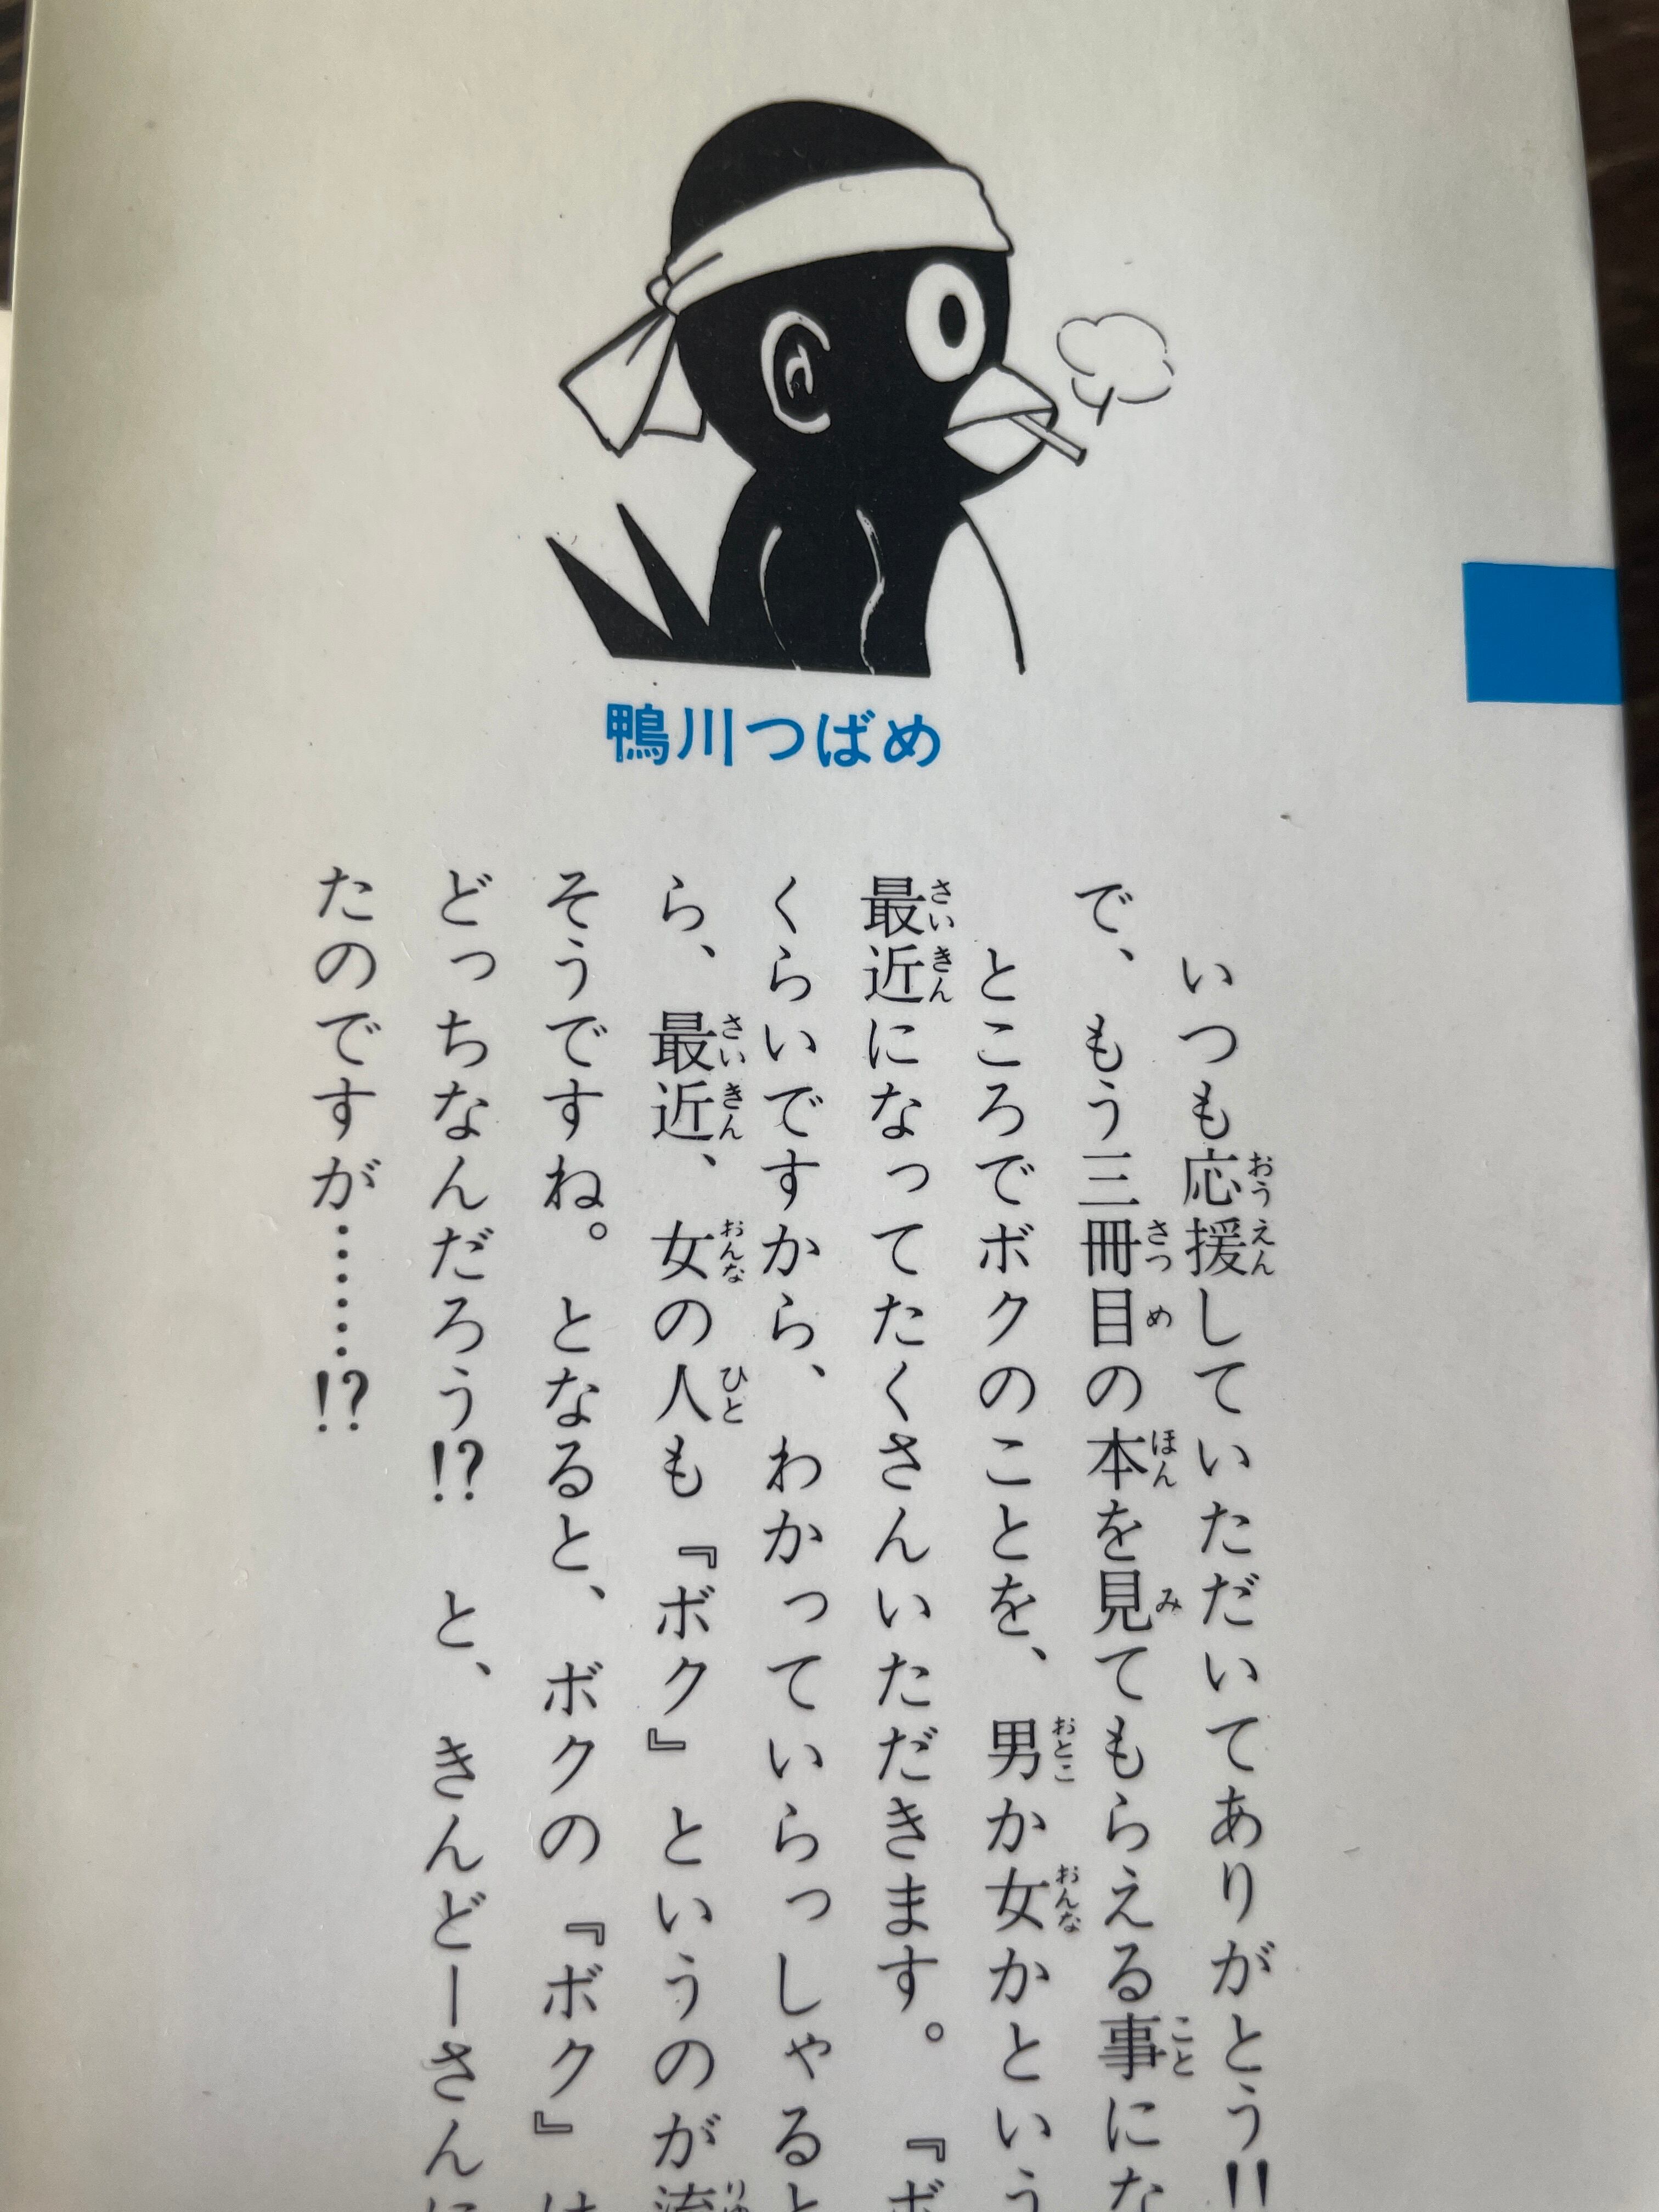 鴨川つばめ
いつも応援していただいてありがとう!!
で、もう三冊目の本を見てもらえる事にな
ところでボクのことを、男か女かという
最近になってたくさんいただきます。『ボ
くらいですから、わかっていらっしゃると
ら、最近、女の人も『ボク』というのが流
そうですね。となると、ボクの『ボク』は
どっちなんだろう!?　と、きんどーさんに
たのですが……!?